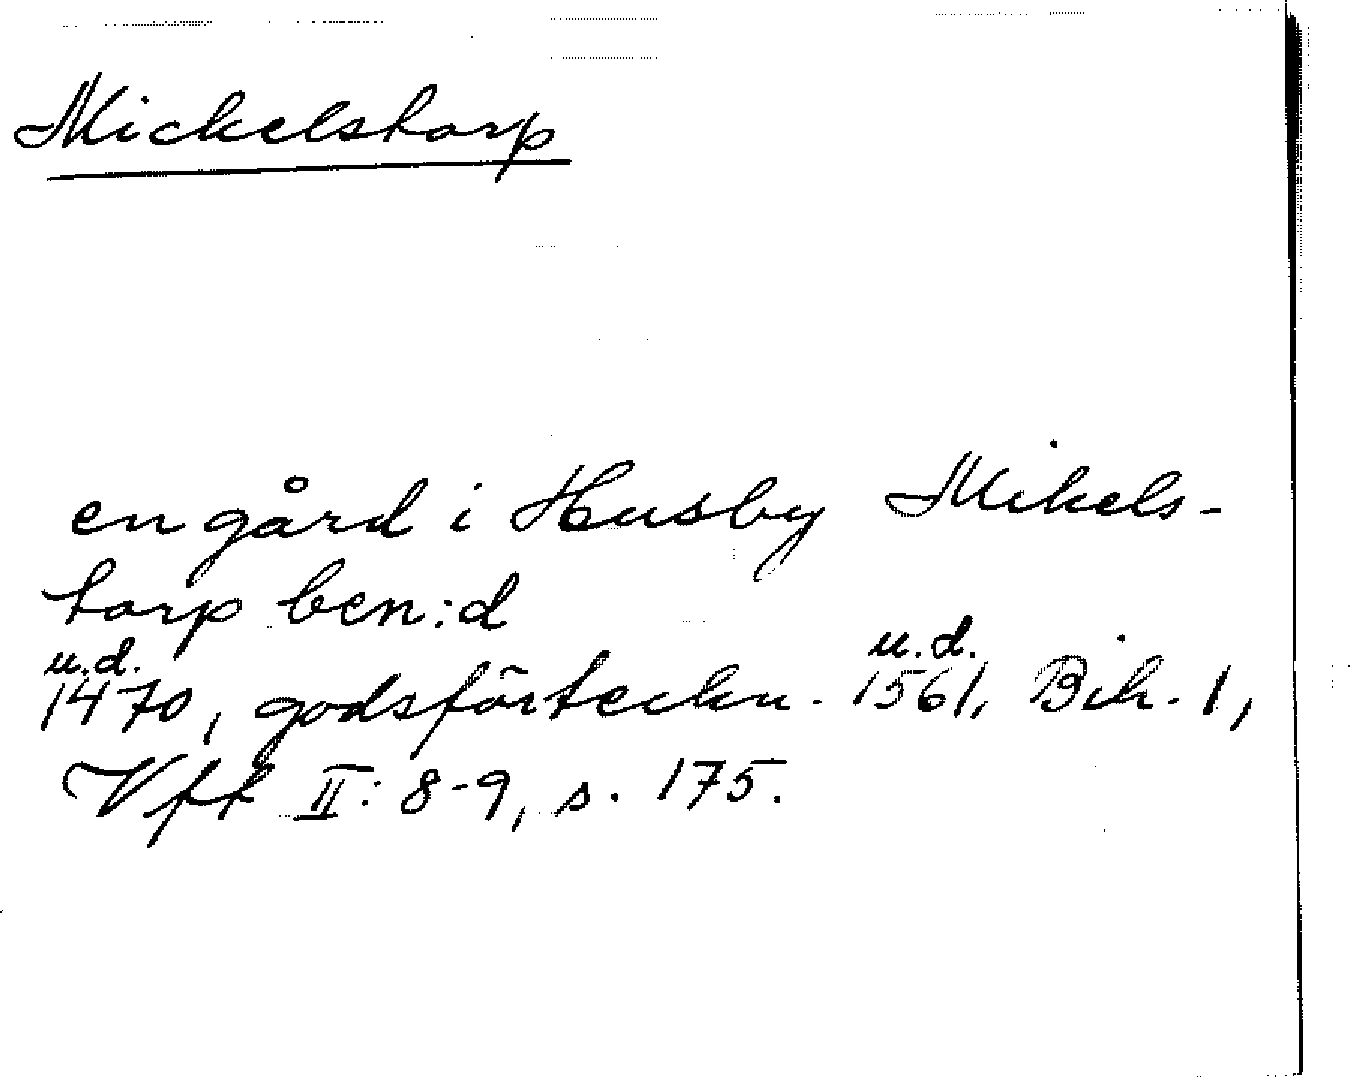 Mickelstorp
en gård i Husby Mikels-
torp ben:d
u.d. u.d.
1470, godsförteckn. 1561, Bih. 1,
Vft II: 8-9, s. 175.